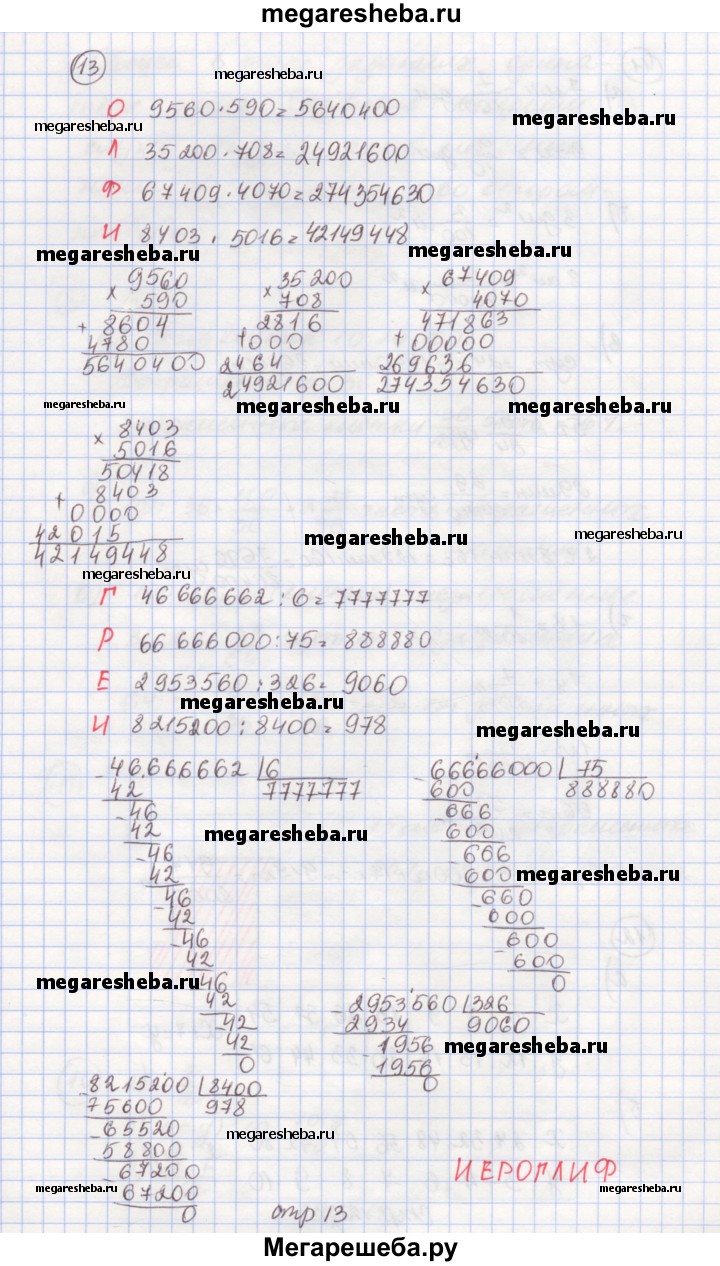 megaresheba.ru
13
megaresheba.ru
О 9560·590=5640400
megaresheba.ru
megaresheba.ru
Л 35200·708=24921600
Ф 67409·4070=274354630
И 8403·5016=42149448
megaresheba.ru
megaresheba.ru
× 9560 × 35200 × 67409
590 708 4070
+ 8604 2816 471863
4780 +000 +00000
5640400 2464 269636
24921600 274354630
megaresheba.ru
megaresheba.ru
megaresheba.ru
× 8403
5016
50418
+ 8403
0000
42015
42149448
megaresheba.ru
megaresheba.ru
megaresheba.ru
Г 46 666 662:6=7777777
Р 66 666 000:75=888880
Е 2953560:326=9060
megaresheba.ru
И 8215200:8400=978
megaresheba.ru
-46.666662 6 -66666000 75
42 7777777 600 888880
-46 -666
42 600
megaresheba.ru
-46 -666
42 600
megaresheba.ru
-46 -660
42 600
-46 -600
42 600
-46 0
megaresheba.ru
42 -2953560 326
-42 2934 9060
42 -1956
0 1956
0
megaresheba.ru
-8215200 8400
75600 978
-65520
58800
megaresheba.ru
-67200
67200
0
ИЕРОГЛИФ
megaresheba.ru
megaresheba.ru
стр 13
Мегарешеба.ру